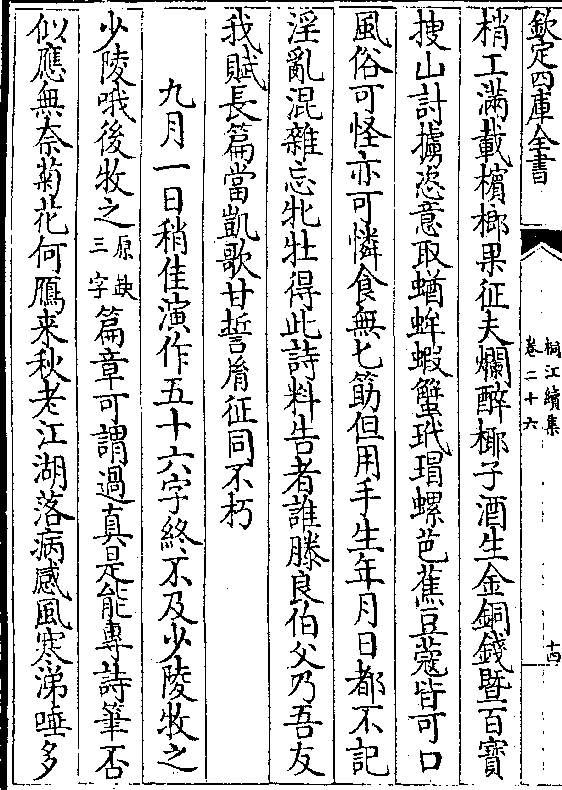 欽定四庫全書
桐江續集
卷二十六
十四
梢工滿載檳榔果征夫爛醉椰子酒生金銅錢暨百寶
搜山討擄恣意取蝤蛑蝦蟹玳瑁螺芭蕉豆蔻皆可口
風俗可怪亦可憐食無匕筯但用手生年月日都不記
淫亂混雜忘牝牡得此詩料告者誰滕良伯父乃吾友
我賦長篇當凱歌甘誓胤征同不朽
九月一日稍佳演作五十六字終不及少陵牧之
少陵哦後牧之原缺三字篇章可謂過真是能專詩筆否
似應無奈菊花何鴈来秋老江湖落病感風寒涕唾多